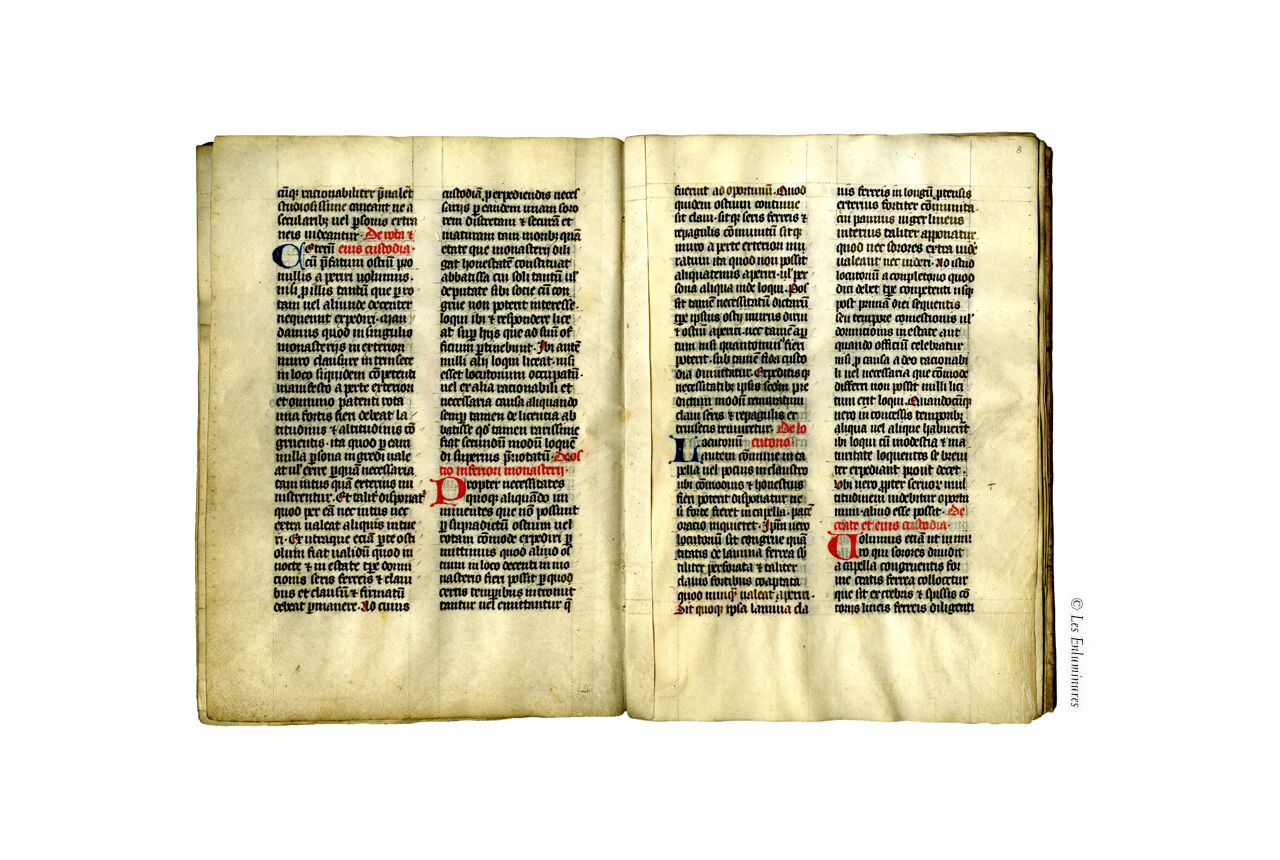 cūqꝫ racionabiliter p̄ualēt
studiosissime caueant ne a
secularibꝫ uel ꝑsonis extra
neis uideantur. De rota ⁊
Ceterū eius custodia.
cū p̄fatum ostiū pro
nullis aperiri uolumus.
nisi ꝓ illis tantū que ꝑ ro
tam uel aliunde decenter
nequeunt expediri. man
damus quod in singulis
monasterijs in exteriori
muro clausure intrinsece
in loco siquidem cōpetenti
manifesto a parte exteriori
et omnino patenti rota
una fortis fieri debeat la
titudinis ⁊ altitudinis cō
gruentis. ita quod ꝑ eam
nulla ꝑsona ingredi uale
at ul' exire ꝑ quā necessaria
tam intus quā exterius mi
nistrentur. Et talit' disponat'
quod per eā nec intus nec
extra ualeat aliquis intue
ri. Ex utraque eciā ꝑte osti
olum fiat ualidū quod in
nocte ⁊ in estate tꝑe dormi
cionis seris ferreis ⁊ claui
bus et clausū ⁊ firmatū
debeat ꝑmanere. Ad cuius
custodiā ꝓ expediendis neces
sarijs ꝑ eandem unam soro
rem discretam ⁊ securā et
maturam tam moribꝫ quā
etate que monasterij dili
gat honestatē constituat
abbatissa cui soli tantū ul'
deputate sibi socie cū con
grue non poterit interesse.
loqui ibi ⁊ respondere lice
at suꝑ hijs que ad suū of
ficium ꝑtinebunt. Ibi autē
nulli alij loqui liceat. nisi
esset locutorium occupatū.
uel ex alia racionabili et
necessaria causa aliquando
semꝑ tamen de licentia ab
batisse qd tamen rarissime
fiat secundū modū loquē
di superius p̄notatū. De os
tio inferiori monasterij.
Propter necessitates
quoqꝫ aliquādo im
minentes que nō possunt
ꝑ supradictū ostium uel
rotam cōmode expediri ꝑ
mittimus quod aliud os
tium in loco decenti in mo
nasterio fieri possit ꝑ quod
certis temꝑibus intromit
tantur uel emittantur q̄
8
fuerint ad oportunū. Quod
quidem ostium continue
sit clausū. sitqꝫ seris ferreis ⁊
repagulis cōmunitū sitqꝫ
muro a parte exteriori mu
ratum ita quod non possit
aliquatenus aperiri. ul' per
sona aliqua inde loqui. Pos
sit tamē necessitatū dictarū
tꝑe ipsius ostij murus dirui
⁊ ostiū aperiri. nec tamē aꝑi
tum nisi quantomin' fieri
poterit. sub tamē fida custo
dia dimittatur. Expeditisqꝫ
necessitatibꝫ ipsis scdm pre
dictum modū remuratum
claui seris ⁊ repagulis ex
trinsecus reuiretur. De lo
Locutoriū cutorio
autem cōmune in ca
pella uel pocius in claustro
ubi cōmodius ⁊ honestius
fieri poterit disponatur ne
si forte fieret in capella. pacē
oracio inquietet. Ipm uero
locutoriū sit congrue quā
titatis de lamina ferrea sub
tiliter perforata ⁊ taliter
clauis fortibus coaptata
quod nunqꝫ ualeat aperiri.
Sit quoqꝫ ipsa lamina cla
uis ferreis in longū ꝓtensis
exterius fortiter cōmunita.
cui pannus niger lineus
interius taliter apponatur.
quod nec sorores extra uide
ualeant nec uideri. Ad istud
locutoriū a completorio quod
dici debet tꝑe competenti usqꝫ
post primā diei sequentis
seu tempore comestionis ul'
dormitionis in estate aut
quando officiū celebratur
nisi ꝑ causa adeo racionabi
li uel necessaria que cōmode
differri non possit nulli lici
tum erit loqui. Quandocūqꝫ
uero in concessis temporibꝫ
aliqua uel alique habuerīt
ibi loqui cū modestia ⁊ ma
turitate loquentes se breui
ter expediant prout decet.
Ubi uero ꝓpter seruor' mul
titudinem uidebitur oportu
num. aliud esse possit. De
crate et eius custodia.
Uolumus eciā ut in mu
ro qui sorores diuidit
a capella congruentis for
me cratis ferrea collocetur
que sit ex crebris ⁊ spissis cō
torijs lineis ferreis diligenti
© Les Enluminures